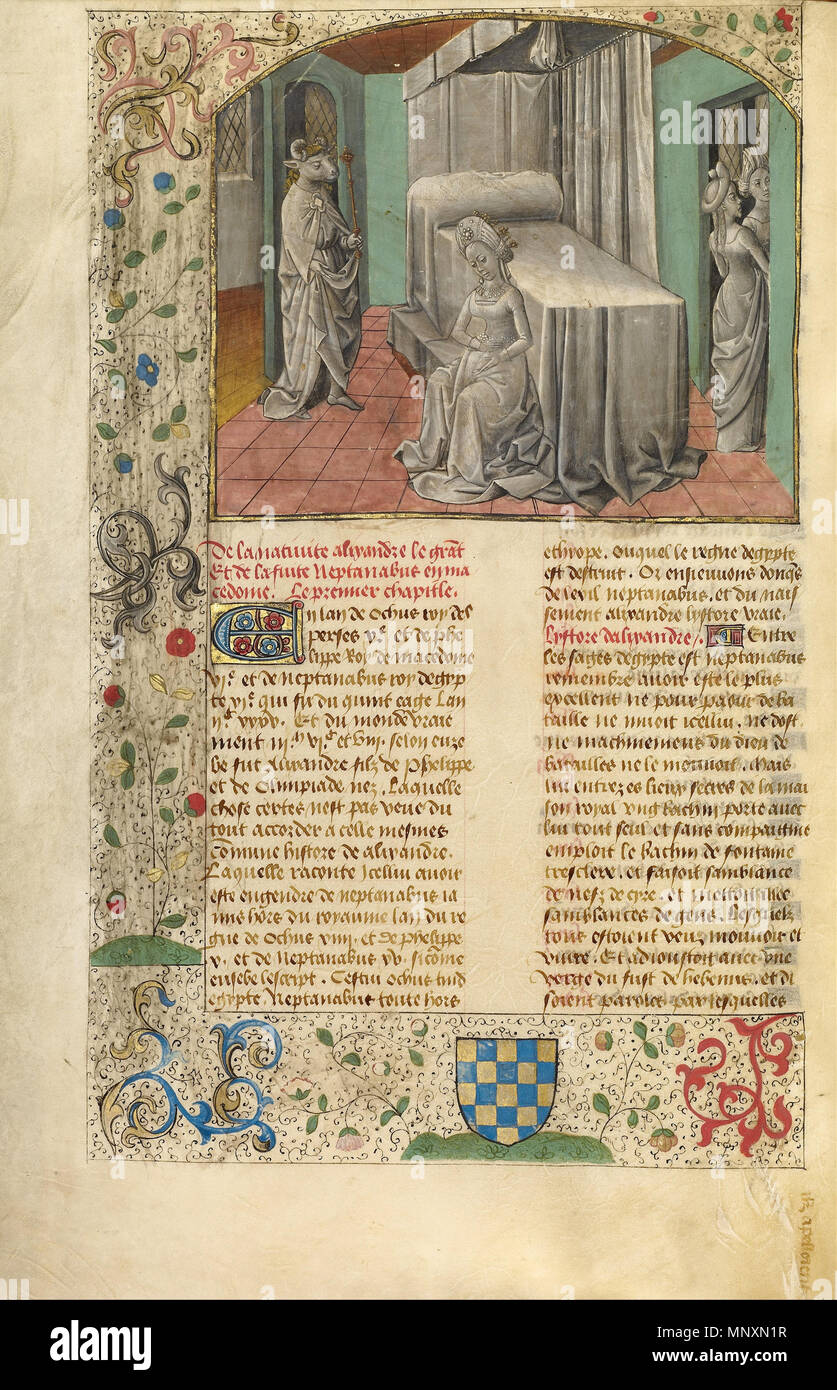 De la nativite alixandre le grãt
Et de la fuite Neptanabus en ma
cedome. Le premier chapitle.
En lan de Ochus roy des
perses et de phe
lippe Roy de macedome
et de neptanabus roy degyp
te qui fu du quint eage Lan
Et du monde vraie
ment selon euze
be fut Alixandre filz de Phelippe
et de Olimpiade nez. Laquelle
chose certes nest pas veue du
tout accorder a celle mesmes
cõmune histore de alixandre.
Laquelle raconte Icellui avoir
este engendre de neptanabus ia
mis hors du royaume lan du re
gne de Ochus viii. et de phelippe
v. et de Neptanabus xv. sicõme
eusebe lescript. Cestui ochus
egypte Neptanabus toute hors
ethyope. Ouquel le regne degypte
est destruit. Or ensieuvons donq̃s
de lexil neptanabus. et du nais
sement alixandre lystore vraie.
Lystore dalixandre. Entre
les sages degypte est neptanabus
remembre avoir este le plus
excellent ne pour paour de ba
taille ne icellui. ne dost
ne machinemens du dieu de
batailles ne le mouvoit. Mais
lui entrez es lieux secres de la mai
son royal ung bachin porte avec
lui tout seul et sans compaignie
emploit le bachin de fontaine
tresclere. et faisoit samblance
de nefz de cyre. et
samblances de gens. Lesquelz
tous estoient veuz mouvoir et
vivre. Et adioustoit avec une
verge du fust de hebenus. et di
soient paroles par lesquelles
alamy stock photo
Image ID: MNXN1R
www.alamy.com